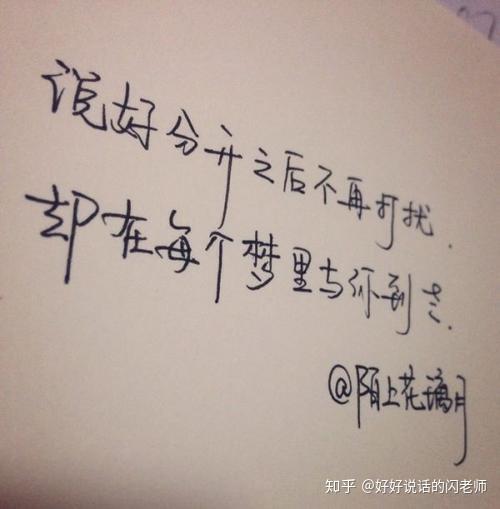 说好分开之后不再打扰.
却在每个梦里与你到老.
@陌上花璃月
知乎 @好好说话的闪老师